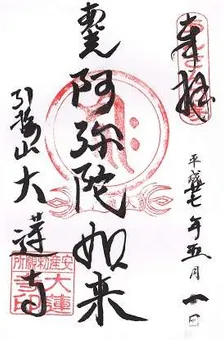 奉拝
平成廿七年五月八日
阿弥陀如来
引接山 大蓮寺
安産祈願所
大蓮寺印